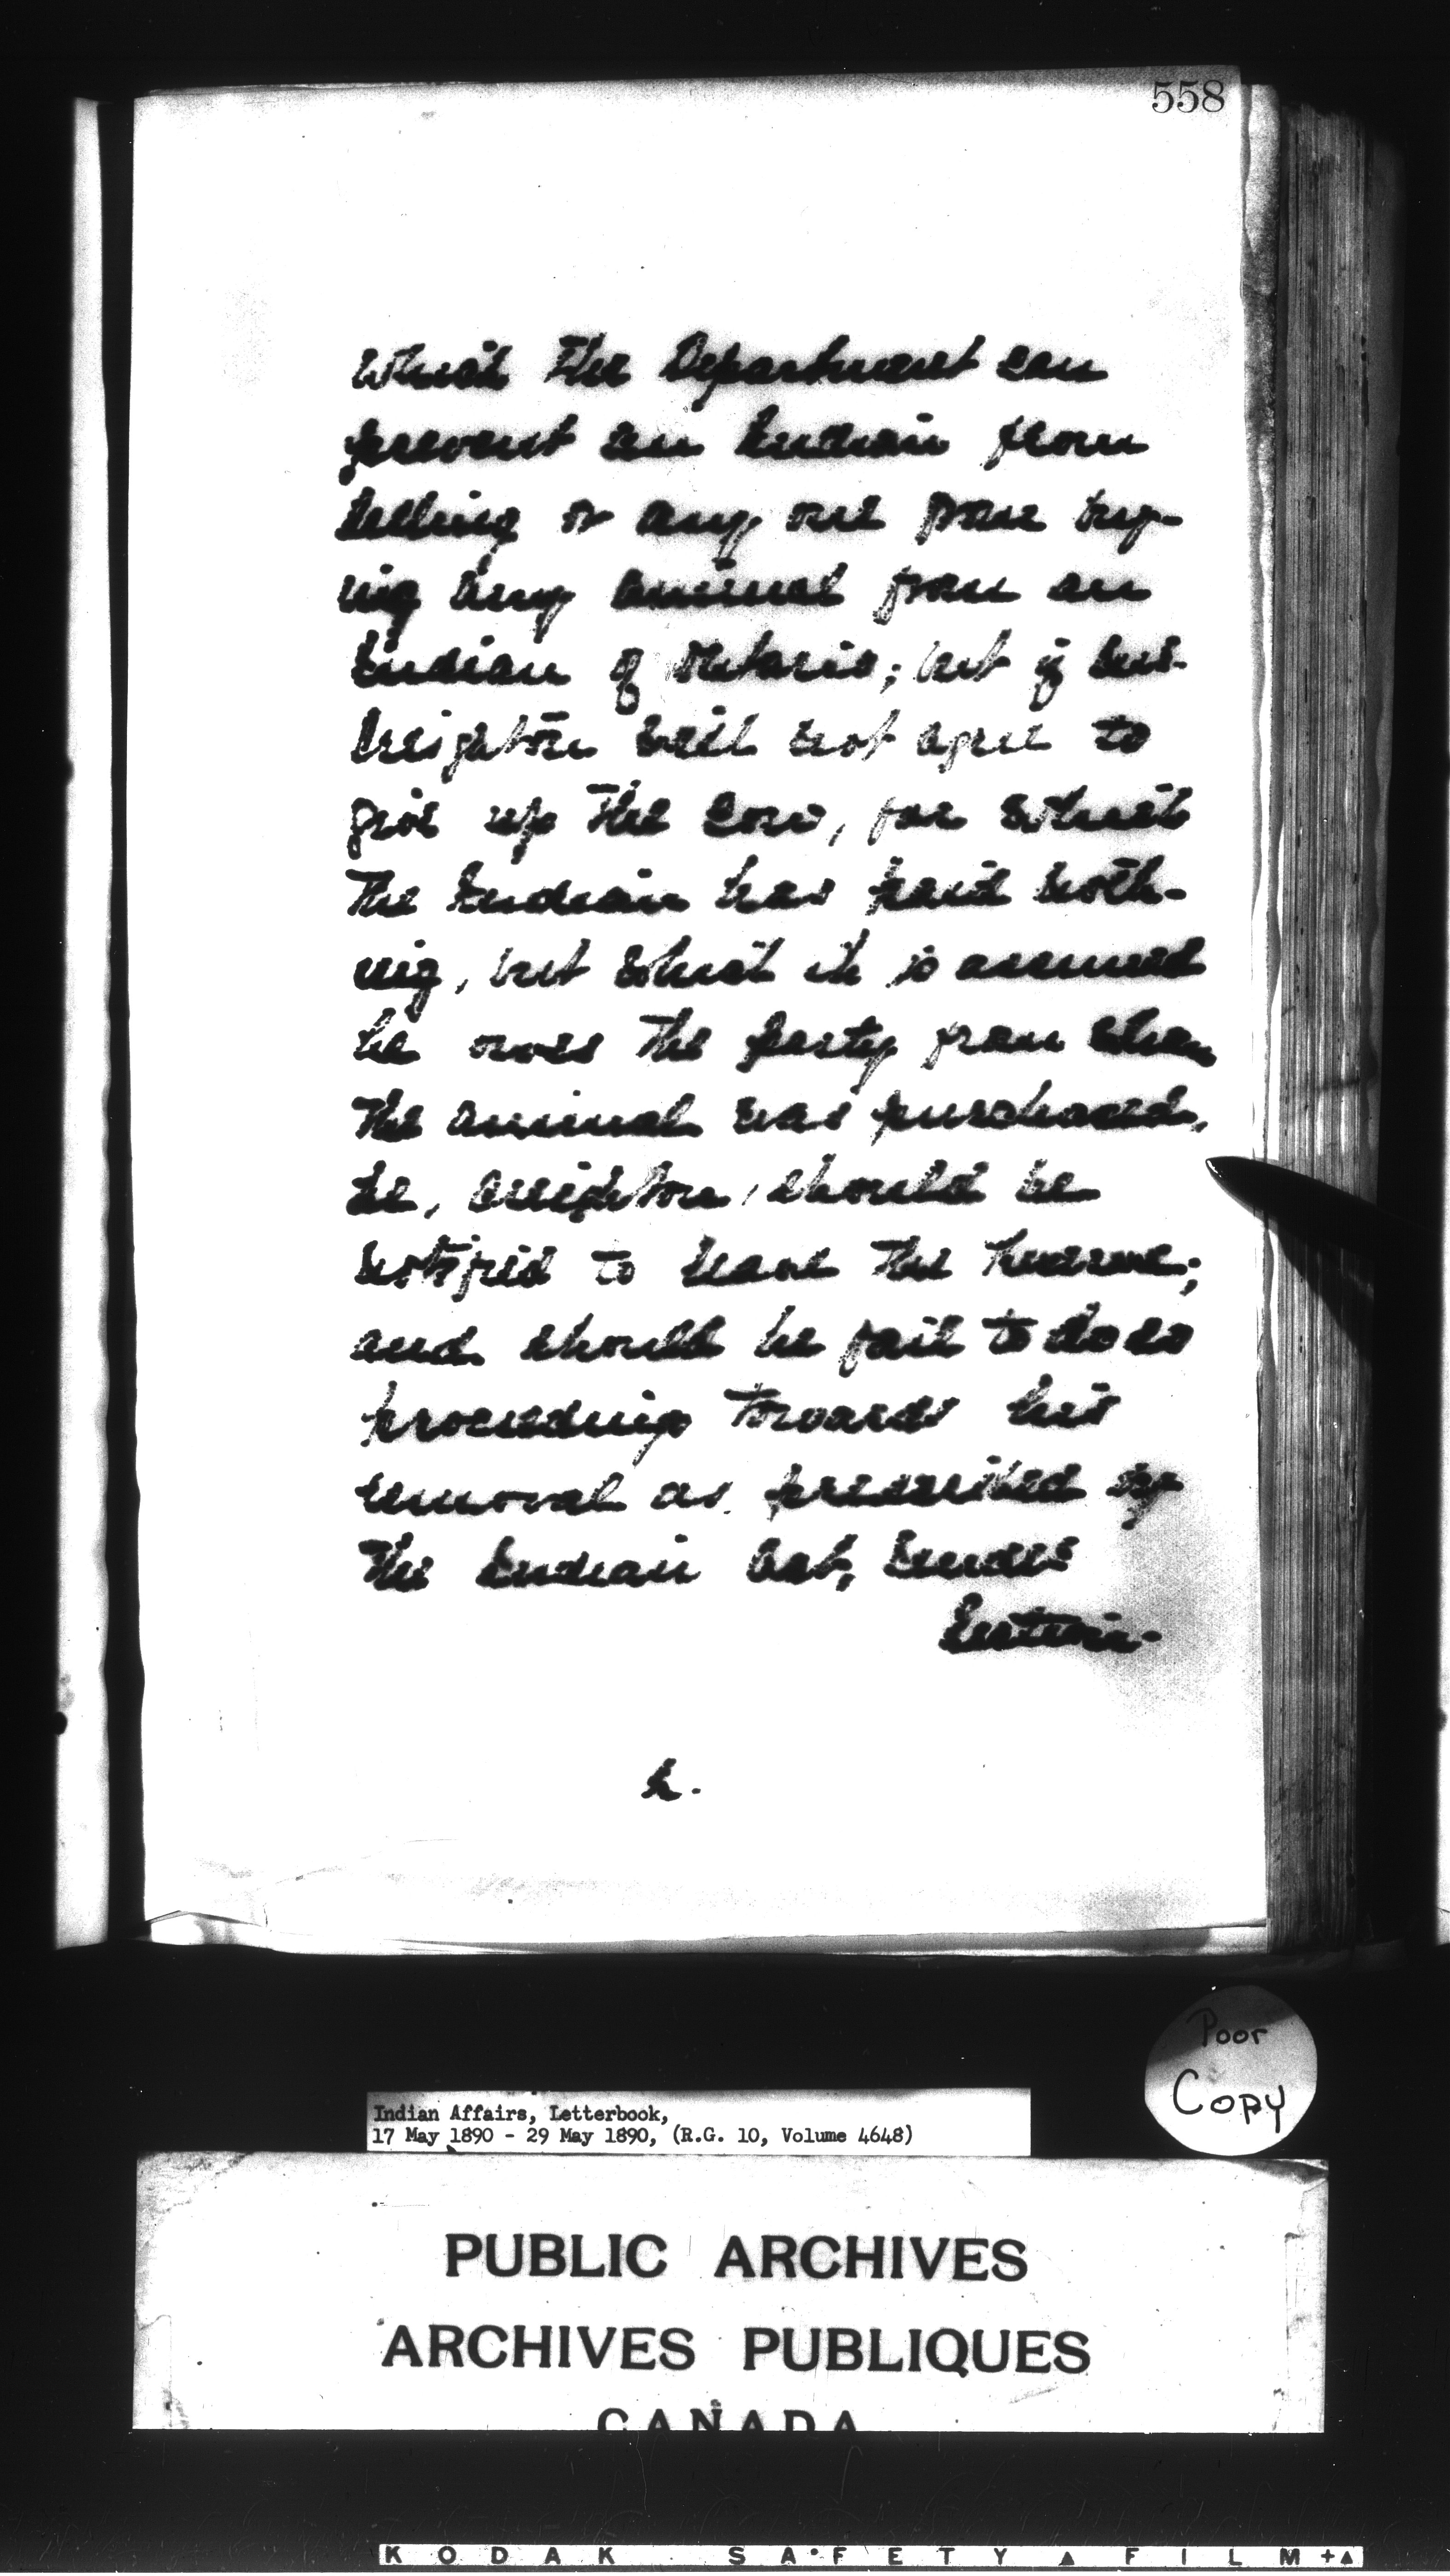 558
which the Department can
prevent an Indian from
selling or any one from buy-
ing any animal from an
Indian of Ontario; but if
Creighton will not agree to
give up the cow, for which
the Indian has paid noth-
ing, but which it is assumed
he owes the party from whom
the animal was purchased,
he, Creighton, should be
notified to leave the Reserve;
and should he fail to do so
proceedings towards his
removal as prescribed by
the Indian Act, under
Poor
Copy
Indian Affairs, Letterbook,
17 May 1890 - 29 May 1890, (R.G. 10, Volume 4648)
PUBLIC ARCHIVES
ARCHIVES PUBLIQUES
CANADA
KODAK SAFETY FILM